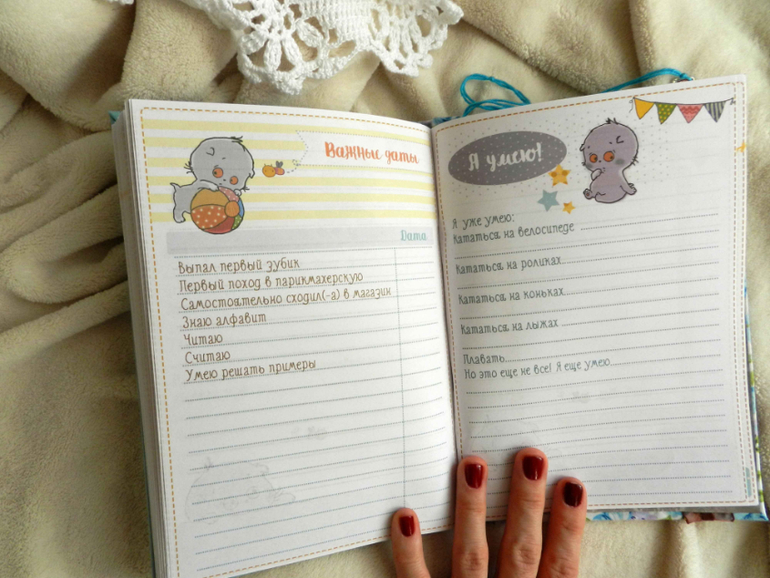 Важные даты
Дата
Выпал первый зубик
Первый поход в парикмахерскую
Самостоятельно сходил(-а) в магазин
Знаю алфавит
Читаю
Считаю
Умею решать примеры
Я умею!
Я уже умею:
Кататься на велосипеде
Кататься на роликах
Кататься на коньках
Кататься на лыжах
Плавать
Но это еще не все! Я еще умею